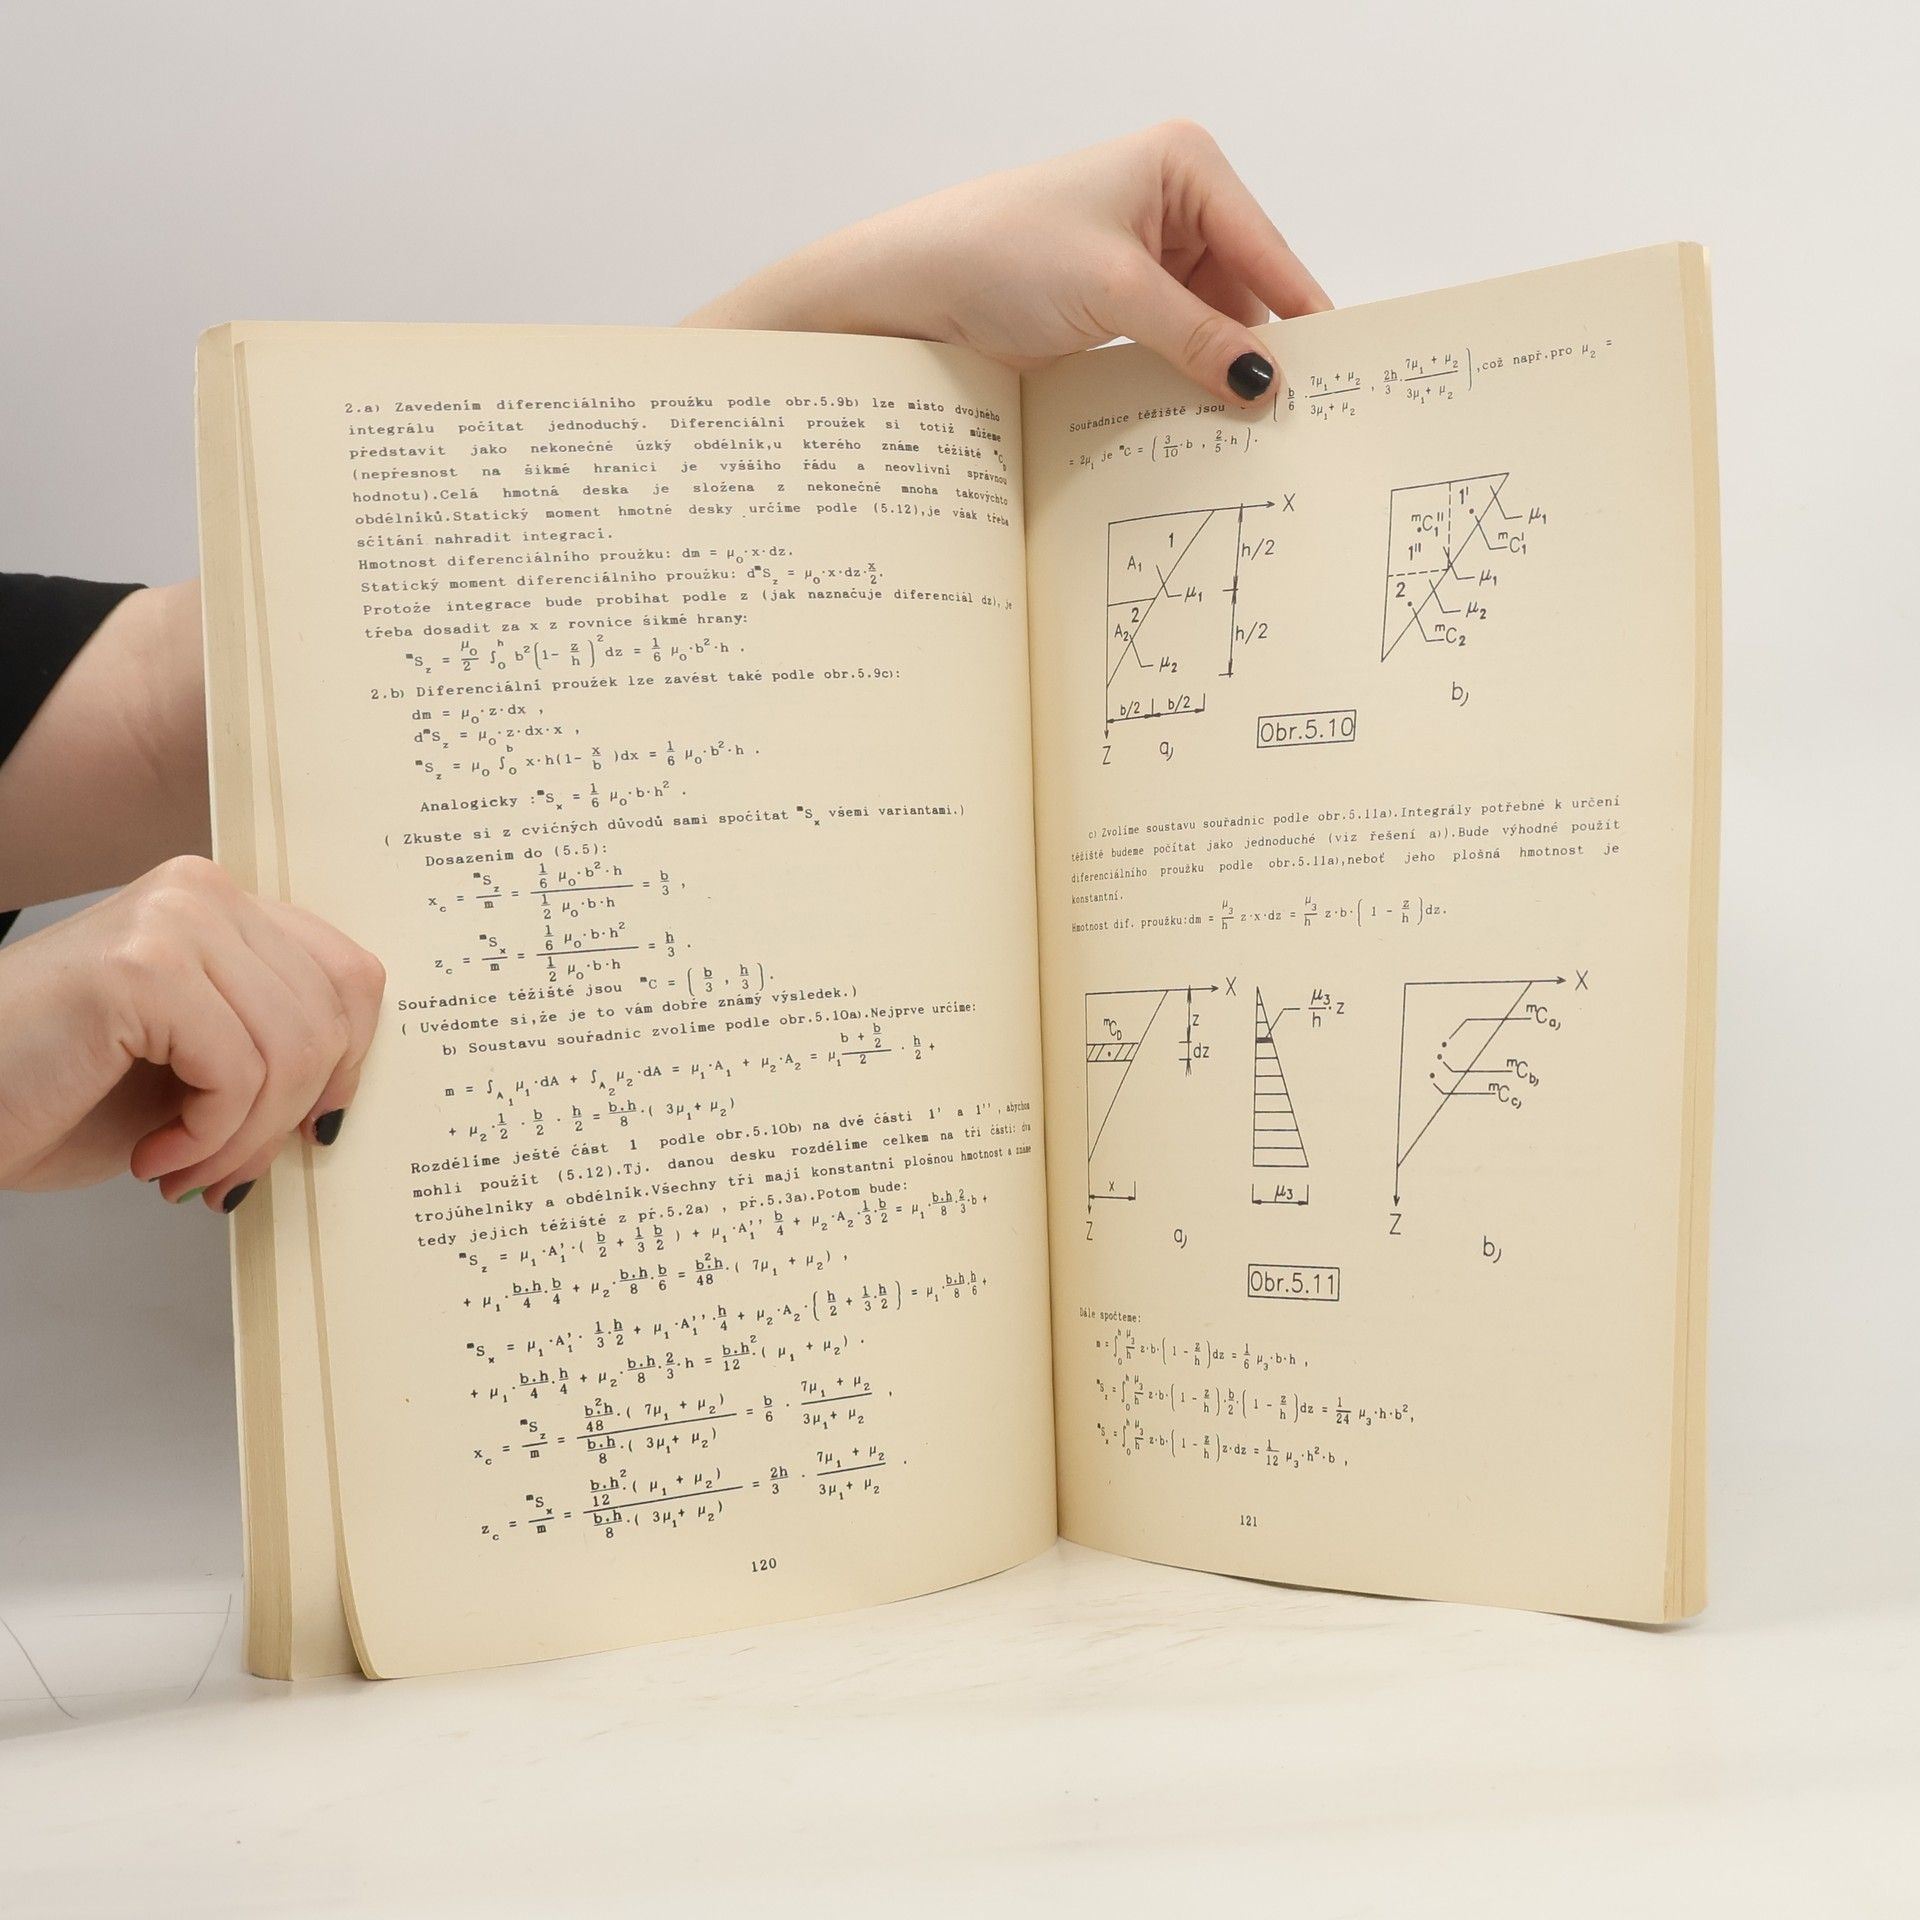 2.a) Zavedením diferenciálního proužku podle obr.5.9b) lze místo dvojného
integrálu počítat jednoduchý. Diferenciální proužek si totiž můžeme
představit jako nekonečně úzký obdélník,u kterého známe těžiště ᵐC_D
(nepřesnost na šikmé hranici je vyššího řádu a neovlivní správnou
hodnotu).Celá hmotná deska je složena z nekonečně mnoha takovýchto
obdélníků.Statický moment hmotné desky určíme podle (5.12),je však třeba
sčítání nahradit integrací.
Hmotnost diferenciálního proužku: dm = μ₀·x·dz.
Statický moment diferenciálního proužku: dᵐS_z = μ₀·x·dz·x/2.
Protože integrace bude probíhat podle z (jak naznačuje diferenciál dz), je
třeba dosadit za x z rovnice šikmé hrany:
ᵐS_z = μ₀/2 ∫₀ʰ b²(1- z/h)² dz = 1/6 μ₀·b²·h .
2.b) Diferenciální proužek lze zavést také podle obr.5.9c):
dm = μ₀·z·dx ,
dᵐS_z = μ₀·z·dx·x ,
ᵐS_z = μ₀ ∫₀ᵇ x·h(1- x/b )dx = 1/6 μ₀·b²·h .
Analogicky :ᵐS_x = 1/6 μ₀·b·h² .
( Zkuste si z cvičných důvodů sami spočítat ᵐS_x všemi variantami.)
Dosazením do (5.5):
x_c = ᵐS_z/m = (1/6 μ₀·b²·h)/(1/2 μ₀·b·h) = b/3 ,
z_c = ᵐS_x/m = (1/6 μ₀·b·h²)/(1/2 μ₀·b·h) = h/3 .
Souřadnice těžiště jsou ᵐC = ( b/3 , h/3 ).
( Uvědomte si,že je to vám dobře známý výsledek.)
b) Soustavu souřadnic zvolíme podle obr.5.10a).Nejprve určíme:
m = ∫_A₁ μ₁·dA + ∫_A₂ μ₂·dA = μ₁·A₁ + μ₂·A₂ = μ₁ (b + b/2)/2 · h/2 +
+ μ₂·1/2 · b/2 · h/2 = b.h/8·( 3μ₁+ μ₂)
Rozdělíme ještě část 1 podle obr.5.10b) na dvě části 1' a 1'', abychom
mohli použít (5.12).Tj. danou desku rozdělíme celkem na tři části: dva
trojúhelníky a obdélník.Všechny tři mají konstantní plošnou hmotnost a známe
tedy jejich těžiště z př.5.2a) , př.5.3a).Potom bude:
ᵐS_z = μ₁·A₁'·( b/2 + 1/3 b/2 ) + μ₁·A₁''·b/4 + μ₂·A₂·1/3·b/2 = μ₁·b.h/8·2/3·b +
+ μ₁·b.h/4·b/4 + μ₂·b.h/8·b/6 = b².h/48·( 7μ₁ + μ₂) ,
ᵐS_x = μ₁·A₁'· 1/3·h/2 + μ₁·A₁''·h/4 + μ₂·A₂·( h/2 + 1/3·h/2 ) = μ₁·b.h/8·h/6 +
+ μ₁·b.h/4·h/4 + μ₂·b.h/8·2/3·h = b.h²/12·( μ₁ + μ₂) .
x_c = ᵐS_z/m = (b².h/48·( 7μ₁ + μ₂))/(b.h/8·( 3μ₁+ μ₂)) = b/6 · (7μ₁ + μ₂)/(3μ₁+ μ₂) ,
z_c = ᵐS_x/m = (b.h²/12·( μ₁ + μ₂))/(b.h/8·( 3μ₁+ μ₂)) = 2h/3 · (7μ₁ + μ₂)/(3μ₁+ μ₂) .
120
Souřadnice těžiště jsou ( b/6·(7μ₁ + μ₂)/(3μ₁+ μ₂) , 2h/3·(7μ₁ + μ₂)/(3μ₁+ μ₂) ),což např.pro μ₂ =
= 2μ₁ je ᵐC = ( 3/10·b , 2/5·h ).
X
1
A₁
μ₁
2
A₂
μ₂
h/2
h/2
b/2 b/2
Z
a)
1'
ᵐC₁''
μ₁
ᵐC₁'
1''
μ₁
2
μ₂
ᵐC₂
b)
Obr.5.10
c) Zvolíme soustavu souřadnic podle obr.5.11a).Integrály potřebné k určení
těžiště budeme počítat jako jednoduché (viz řešení a)).Bude výhodné použít
diferenciálního proužku podle obr.5.11a),neboť jeho plošná hmotnost je
konstantní.
Hmotnost dif. proužku:dm = μ₃/h z·x·dz = μ₃/h z·b·( 1 - z/h )dz.
X
ᵐC_D
z
dz
x
Z
μ₃/h·z
μ₃
a)
X
ᵐC_a)
ᵐC_b)
ᵐC_c)
Z
b)
Obr.5.11
Dále spočteme:
m = ∫₀ʰ μ₃/h z·b·( 1 - z/h )dz = 1/6 μ₃·b·h ,
ᵐS_z = ∫₀ʰ μ₃/h z·b·( 1 - z/h )·b/2·( 1 - z/h )dz = 1/24 μ₃·h·b²,
ᵐS_x = ∫₀ʰ μ₃/h z·b·( 1 - z/h )z·dz = 1/12 μ₃·h²·b ,
121